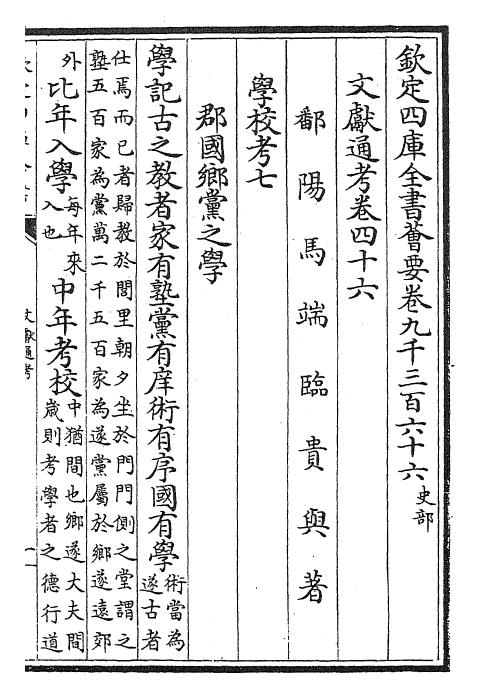 欽定四庫全書薈要卷九千三百六十六史部
文獻通考卷四十六
鄱陽馬端臨貴與著
學校考七
郡國鄉黨之學
學記古之教者家有塾黨有庠術有序國有學術當為遂古者
仕焉而已者歸教於閭里朝夕坐於門門側之堂謂之
塾五百家為黨萬二千五百家為遂黨屬於鄉遂遠郊
外比年入學每年來入也中年考校中猶間也鄉遂大夫間歲則考學者之德行道
文獻通考
一